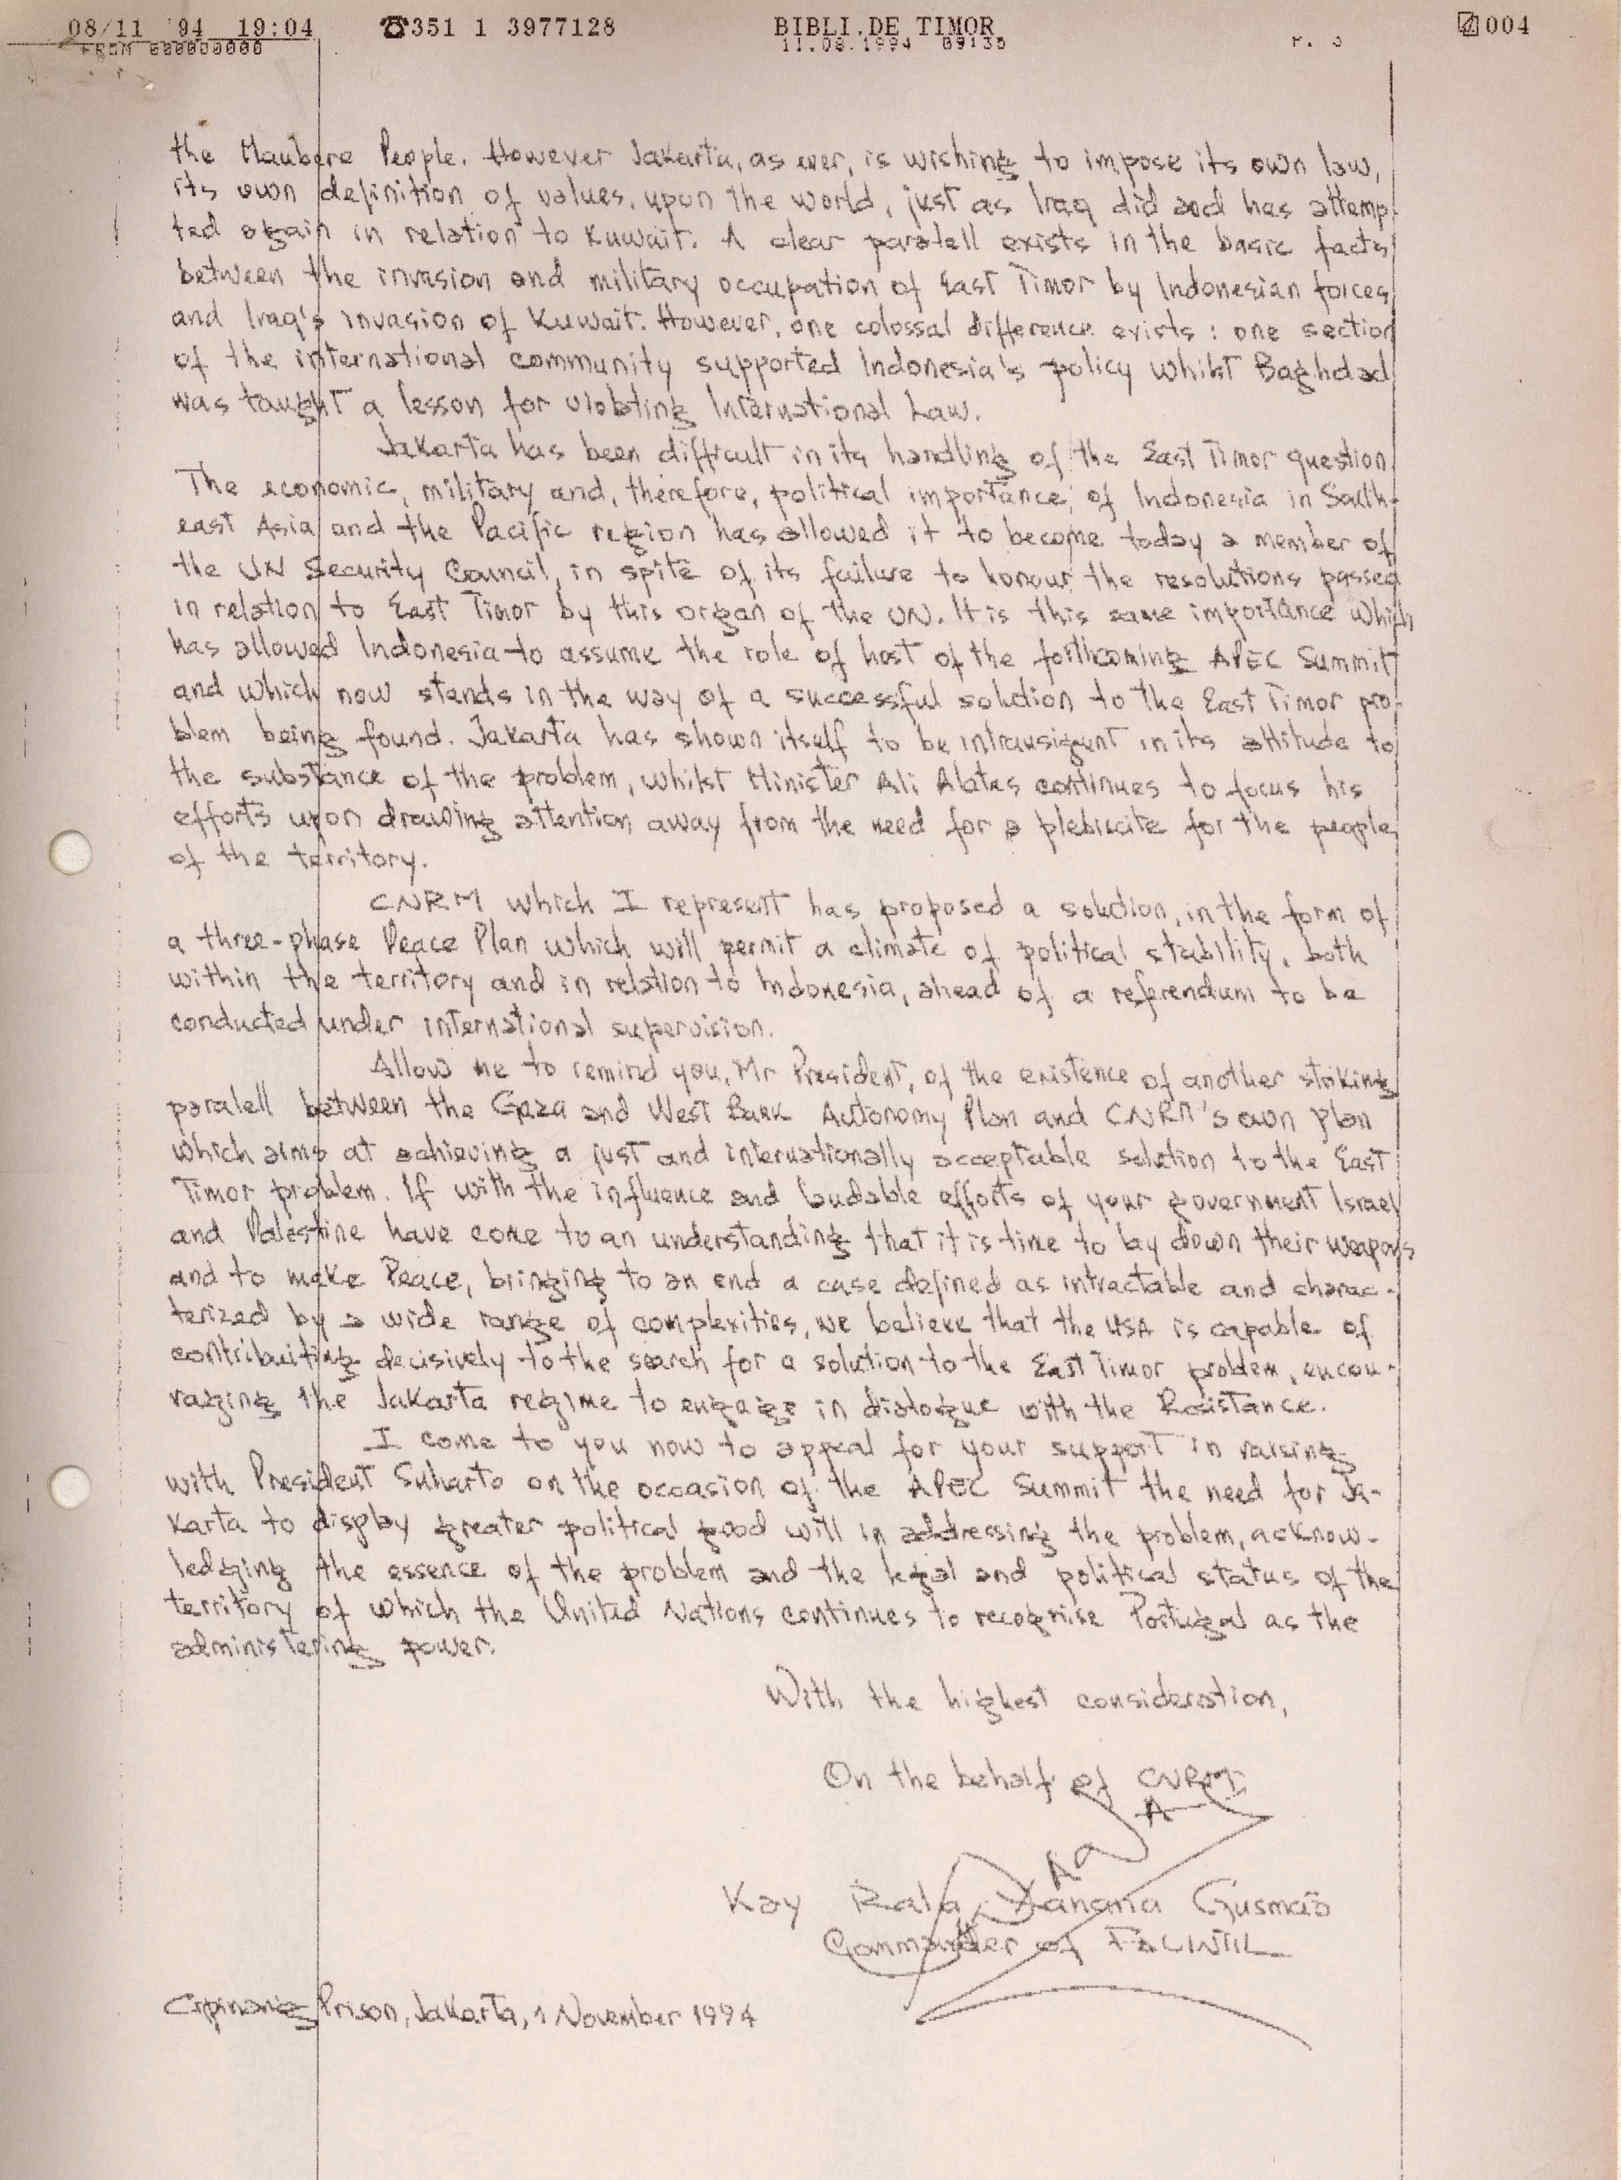 08/11 '94 19:04 ☎351 1 3977128 BIBLI.DE TIMOR 004
FROM 000000000 11.08.1994 09:35 P. 3
the Maubere People. However Jakarta, as ever, is wishing to impose its own law,
its own definition of values, upon the world, just as Iraq did and has attemp-
ted again in relation to Kuwait. A clear paralell exists in the basic facts
between the invasion and military occupation of East Timor by Indonesian forces
and Iraq's invasion of Kuwait. However, one colossal difference exists: one section
of the international community supported Indonesia's policy whilst Baghdad
was taught a lesson for violating International Law.
Jakarta has been difficult in its handling of the East Timor question.
The economic, military and, therefore, political importance, of Indonesia in South-
east Asia and the Pacific region has allowed it to become today a member of
the UN Security Council, in spite of its failure to honour the resolutions passed
in relation to East Timor by this organ of the UN. It is this same importance which
has allowed Indonesia to assume the role of host of the forthcoming APEC Summit
and which now stands in the way of a successful solution to the East Timor pro-
blem being found. Jakarta has shown itself to be intransigent in its attitude to
the substance of the problem, whilst Minister Ali Alatas continues to focus his
efforts upon drawing attention away from the need for a plebiscite for the people
of the territory.
CNRM which I represent has proposed a solution, in the form of
a three-phase Peace Plan which will permit a climate of political stability, both
within the territory and in relation to Indonesia, ahead of a referendum to be
conducted under international supervision.
Allow me to remind you, Mr President, of the existence of another striking
paralell between the Gaza and West Bank Autonomy Plan and CNRM's own plan
which aims at achieving a just and internationally acceptable solution to the East
Timor problem. If with the influence and laudable efforts of your government Israel
and Palestine have come to an understanding that it is time to lay down their weapons
and to make Peace, bringing to an end a case defined as intractable and charac-
terized by a wide range of complexities, we believe that the USA is capable of
contribuiting decisively to the search for a solution to the East Timor problem, encou-
raging the Jakarta regime to engage in dialogue with the Resistance.
I come to you now to appeal for your support in raising
with President Suharto on the occasion of the APEC Summit the need for Ja-
karta to display greater political good will in addressing the problem, acknow-
ledging the essence of the problem and the legal and political status of the
territory of which the United Nations continues to recognise Portugal as the
administering power.
With the highest consideration,
On the behalf of CNRM
Kay Rala Xanana Gusmão
Commander of FALINTIL
Cipinang Prison, Jakarta, 1 November 1994